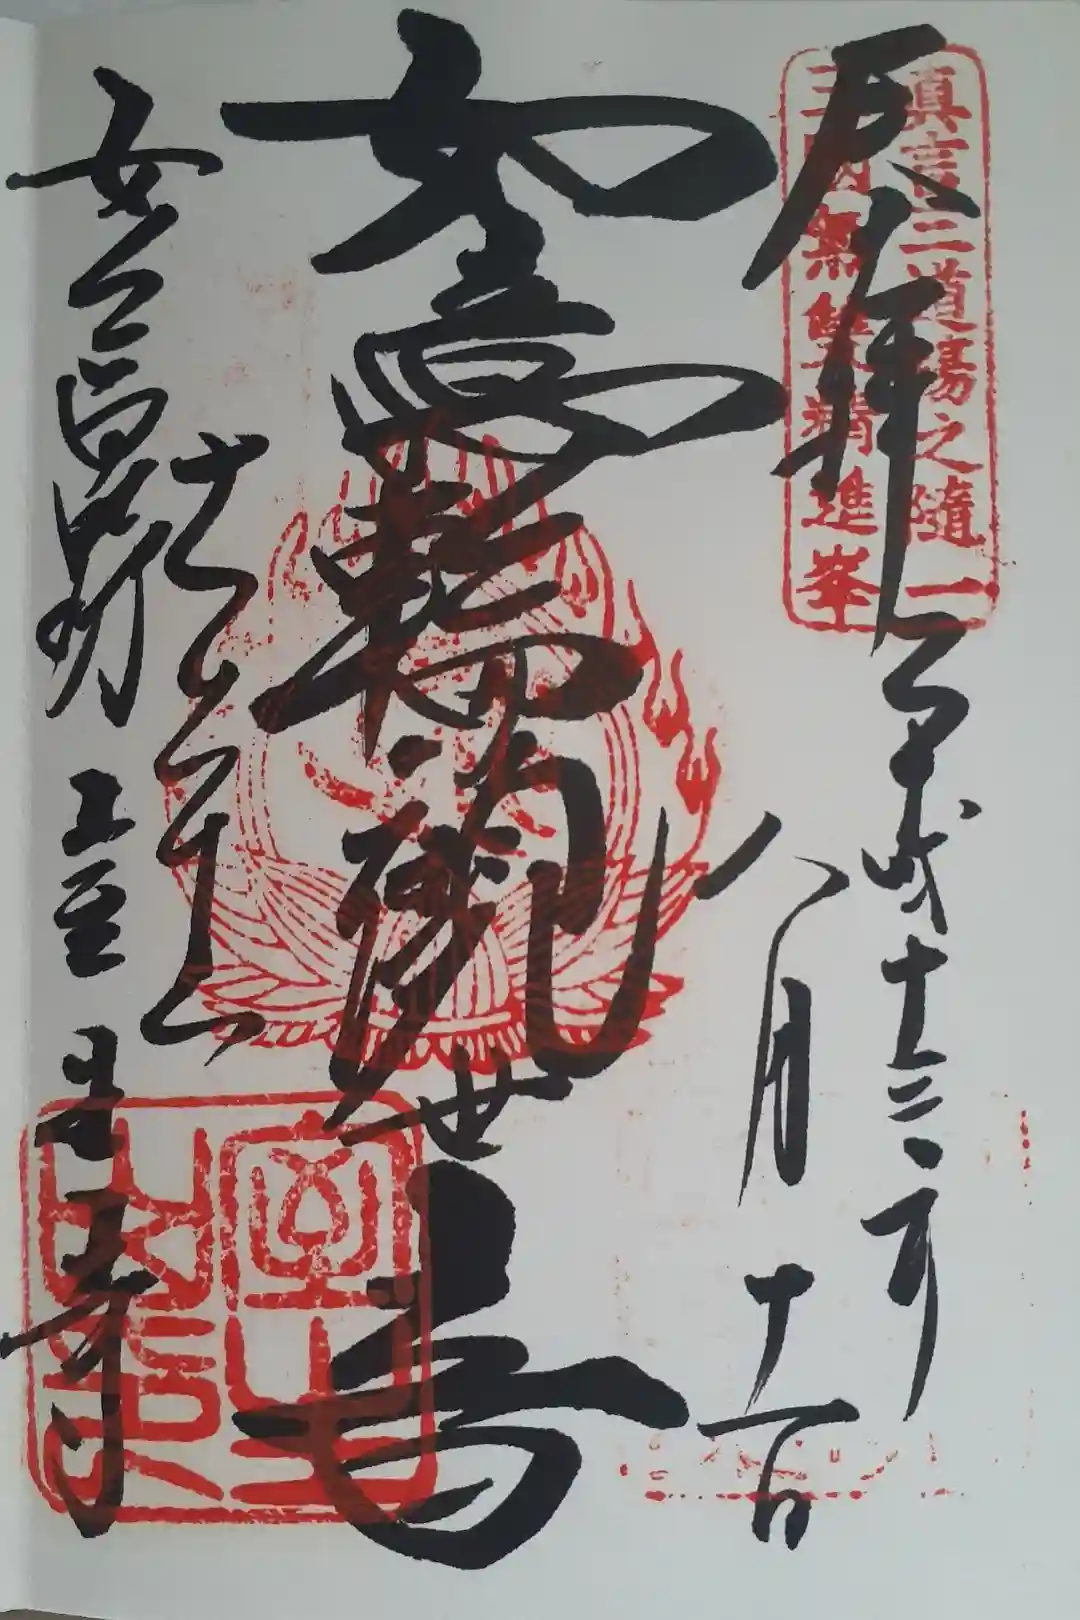 真言三道場之随一
三国無雙精進峯
奉拝
平成十三年
八月十一日
如意輪観世音
女人高野
室生寺